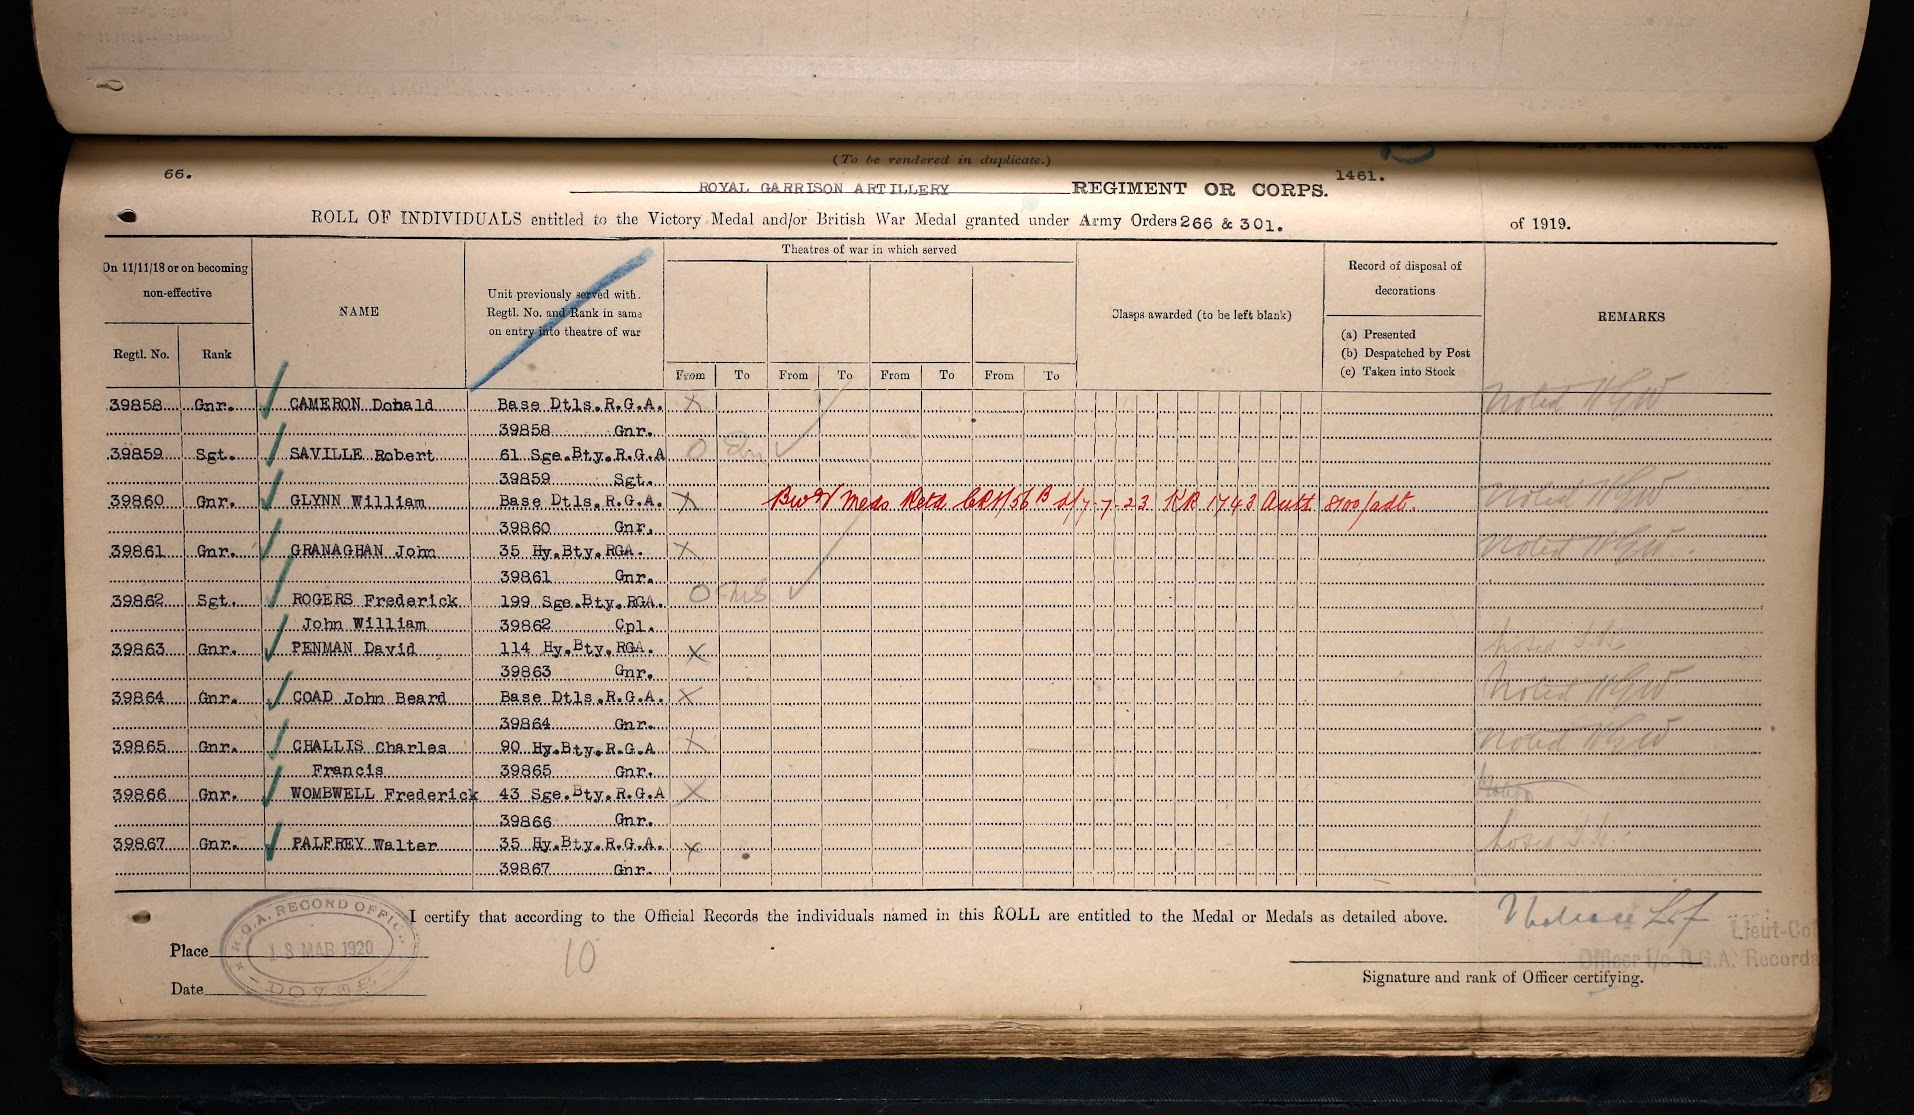 (To be rendered in duplicate.)
66.
1461.
ROYAL GARRISON ARTILLERY REGIMENT OR CORPS.
ROLL OF INDIVIDUALS entitled to the Victory Medal and/or British War Medal granted under Army Orders 266 & 301. of 1919.
On 11/11/18 or on becoming non-effective
Regtl. No.
Rank
NAME
Unit previously served with. Regtl. No. and Rank in same on entry into theatre of war
Theatres of war in which served
From To From To From To From To
Clasps awarded (to be left blank)
Record of disposal of decorations
(a) Presented
(b) Despatched by Post
(c) Taken into Stock
REMARKS
39858 Gnr. CAMERON Donald Base Dtls.R.G.A. X Noted WGW
39858 Gnr.
39859 Sgt. SAVILLE Robert 61 Sge.Bty.R.G.A O
39859 Sgt.
39860 Gnr. GLYNN William Base Dtls.R.G.A. X BW&V Meds Retd 7.7.23 KR 1743 Auth 8100/adt. Noted WGW
39860 Gnr.
39861 Gnr. GRANAGHAN John 35 Hy.Bty.RGA. X Noted WGW
39861 Gnr.
39862 Sgt. ROGERS Frederick 199 Sge.Bty.RGA. O
John William 39862 Cpl.
39863 Gnr. PENMAN David 114 Hy.Bty.RGA. X
39863 Gnr.
39864 Gnr. COAD John Beard Base Dtls.R.G.A. X Noted WGW
39864 Gnr.
39865 Gnr. CHALLIS Charles 90 Hy.Bty.R.G.A X Noted WGW
Francis 39865 Gnr.
39866 Gnr. WOMBWELL Frederick 43 Sge.Bty.R.G.A X
39866 Gnr.
39867 Gnr. PALFREY Walter 35 Hy.Bty.R.G.A. X
39867 Gnr.
I certify that according to the Official Records the individuals named in this ROLL are entitled to the Medal or Medals as detailed above.
R.G.A. RECORD OFFICE
13 MAR 1920
DOVER
Place
Date
10
Lieut-Col
Officer i/c R.G.A. Records
Signature and rank of Officer certifying.